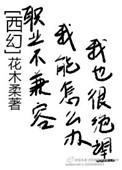 我也很绝望
我能怎么办
职业不兼容
[西幻]花木柔著